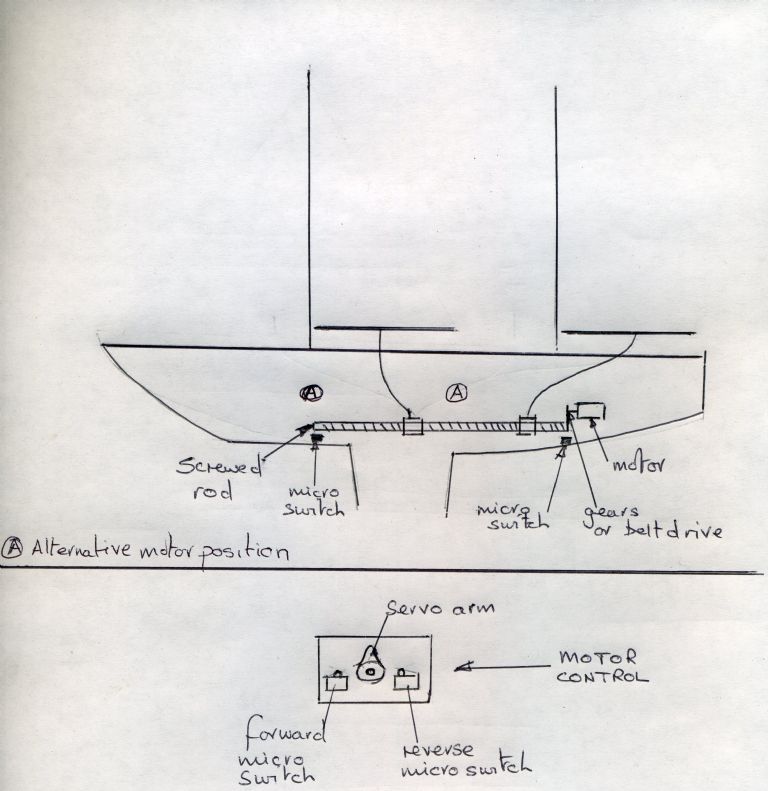 A
A
Screwed
rod
micro
switch
micro
switch
motor
gears
or belt drive
A Alternative motor position
Servo arm
MOTOR
CONTROL
forward
micro
Switch
reverse
micro switch